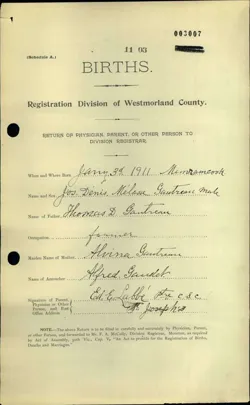 003007
(Schedule A.)
1193
BIRTHS.
Registration Division of Westmorland County.
RETURN OF PHYSICIAN, PARENT, OR OTHER PERSON TO
DIVISION REGISTRAR.
When and Where Born Jany 3d 1911 Memramcook
Name and Sex Jos. Denis Gautreau Male
Name of Father Thomas D. Gautreau
Occupation farmer
Maiden Name of Mother Alvina Gautreau
Name of Informant Alfred Gaudet
Signature of Parent, Physician or Other Person, and Post Office Address
Ed. E. Labbé c.s.c
St Josephs
NOTE.—The above Return is to be filled in carefully and accurately by Physician, Parent,
or other Person, and forwarded to Division Registrar, Moncton, as required
by Act of Assembly, Cap. "An Act to provide for the Registration of Births,
Deaths and Marriages."